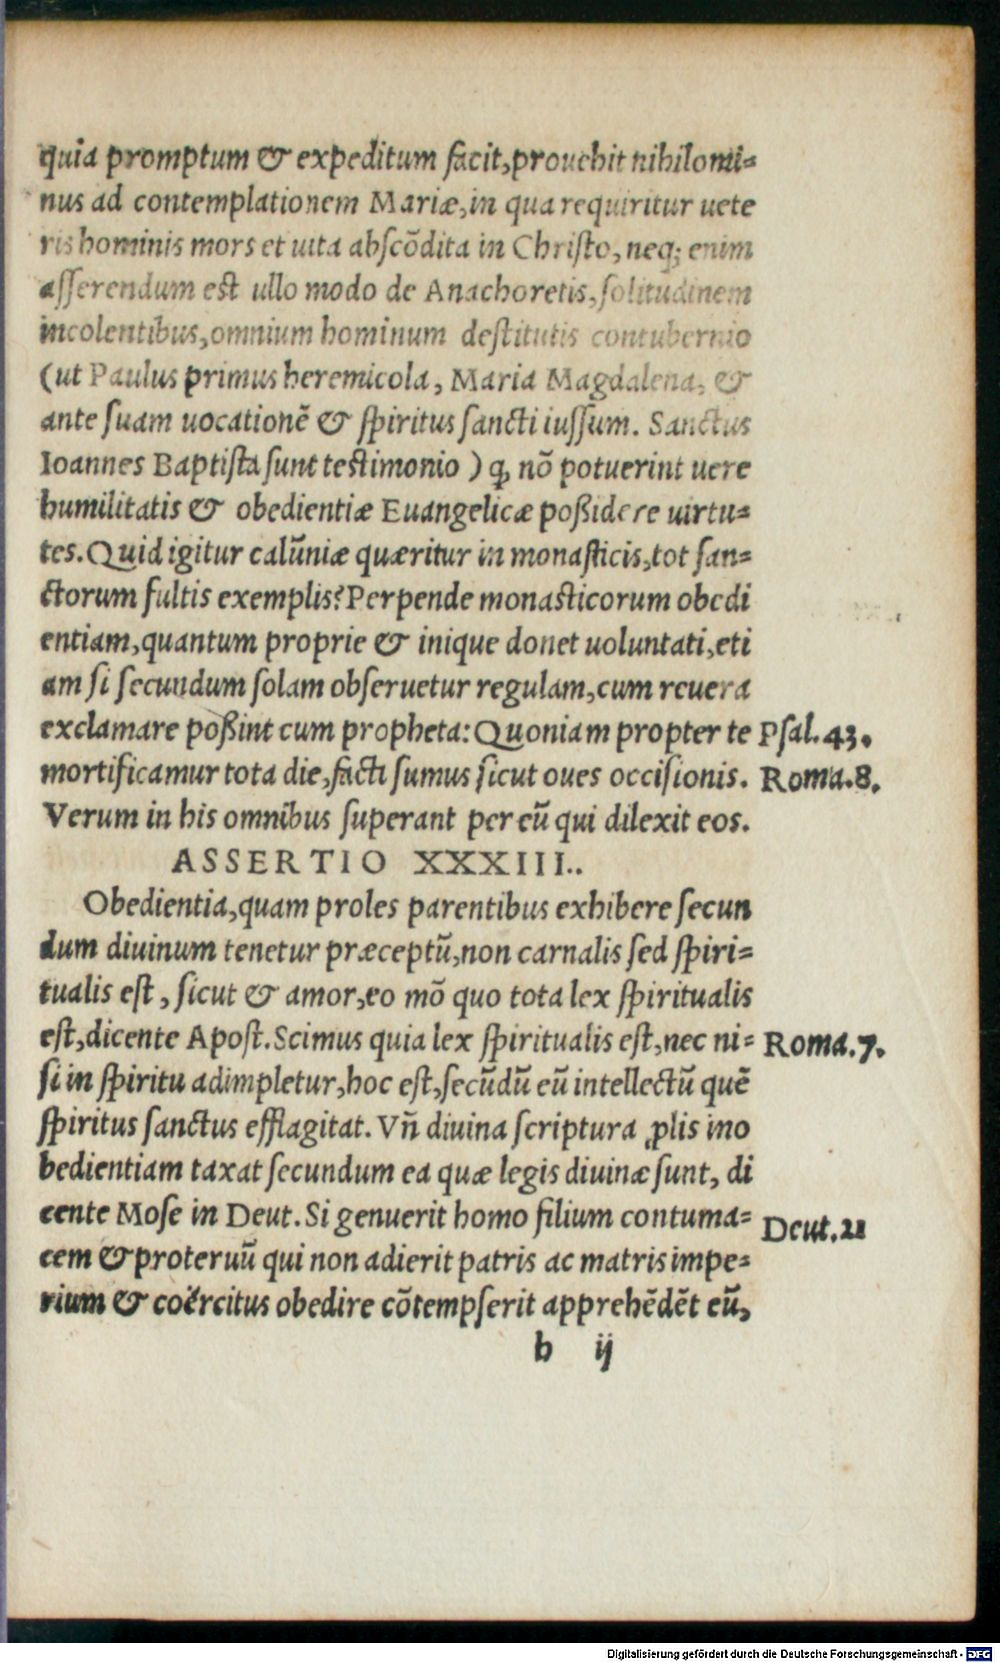 quia promptum & expeditum facit, prouehit nihilomi=
nus ad contemplationem Mariæ, in qua requiritur uete
ris hominis mors et uita abscõdita in Christo, neq; enim
asserendum est ullo modo de Anachoretis, solitudinem
incolentibus, omnium hominum destitutis contubernio
(ut Paulus primus heremicola, Maria Magdalena, &
ante suam uocationẽ & spiritus sancti iussum. Sanctus
Ioannes Baptista sunt testimonio ) ꝙ nõ potuerint uere
humilitatis & obedientiæ Euangelicæ poßidere uirtu=
tes. Quid igitur calũniæ quæritur in monasticis, tot san=
ctorum fultis exemplis? Perpende monasticorum obedi
entiam, quantum proprie & inique donet uoluntati, eti
am si secundum solam obseruetur regulam, cum reuera
exclamare poßint cum propheta: Quoniam propter te Psal. 43.
mortificamur tota die, facti sumus sicut oues occisionis. Roma. 8.
Verum in his omnibus superant per eũ qui dilexit eos.
ASSERTIO XXXIII..
Obedientia, quam proles parentibus exhibere secun
dum diuinum tenetur præceptũ, non carnalis sed spiri=
tualis est, sicut & amor, eo mõ quo tota lex spiritualis
est, dicente Apost. Scimus quia lex spiritualis est, nec ni= Roma. 7.
si in spiritu adimpletur, hoc est, secũdũ eũ intellectũ quẽ
spiritus sanctus efflagitat. Vñ diuina scriptura ꝓlis ino
bedientiam taxat secundum ea quæ legis diuinæ sunt, di
cente Mose in Deut. Si genuerit homo filium contuma= Deut. 21
cem & proteruũ qui non adierit patris ac matris impe=
rium & coërcitus obedire cõtempserit apprehẽdẽt eũ,
b ij
Digitalisierung gefördert durch die Deutsche Forschungsgemeinschaft - DFG